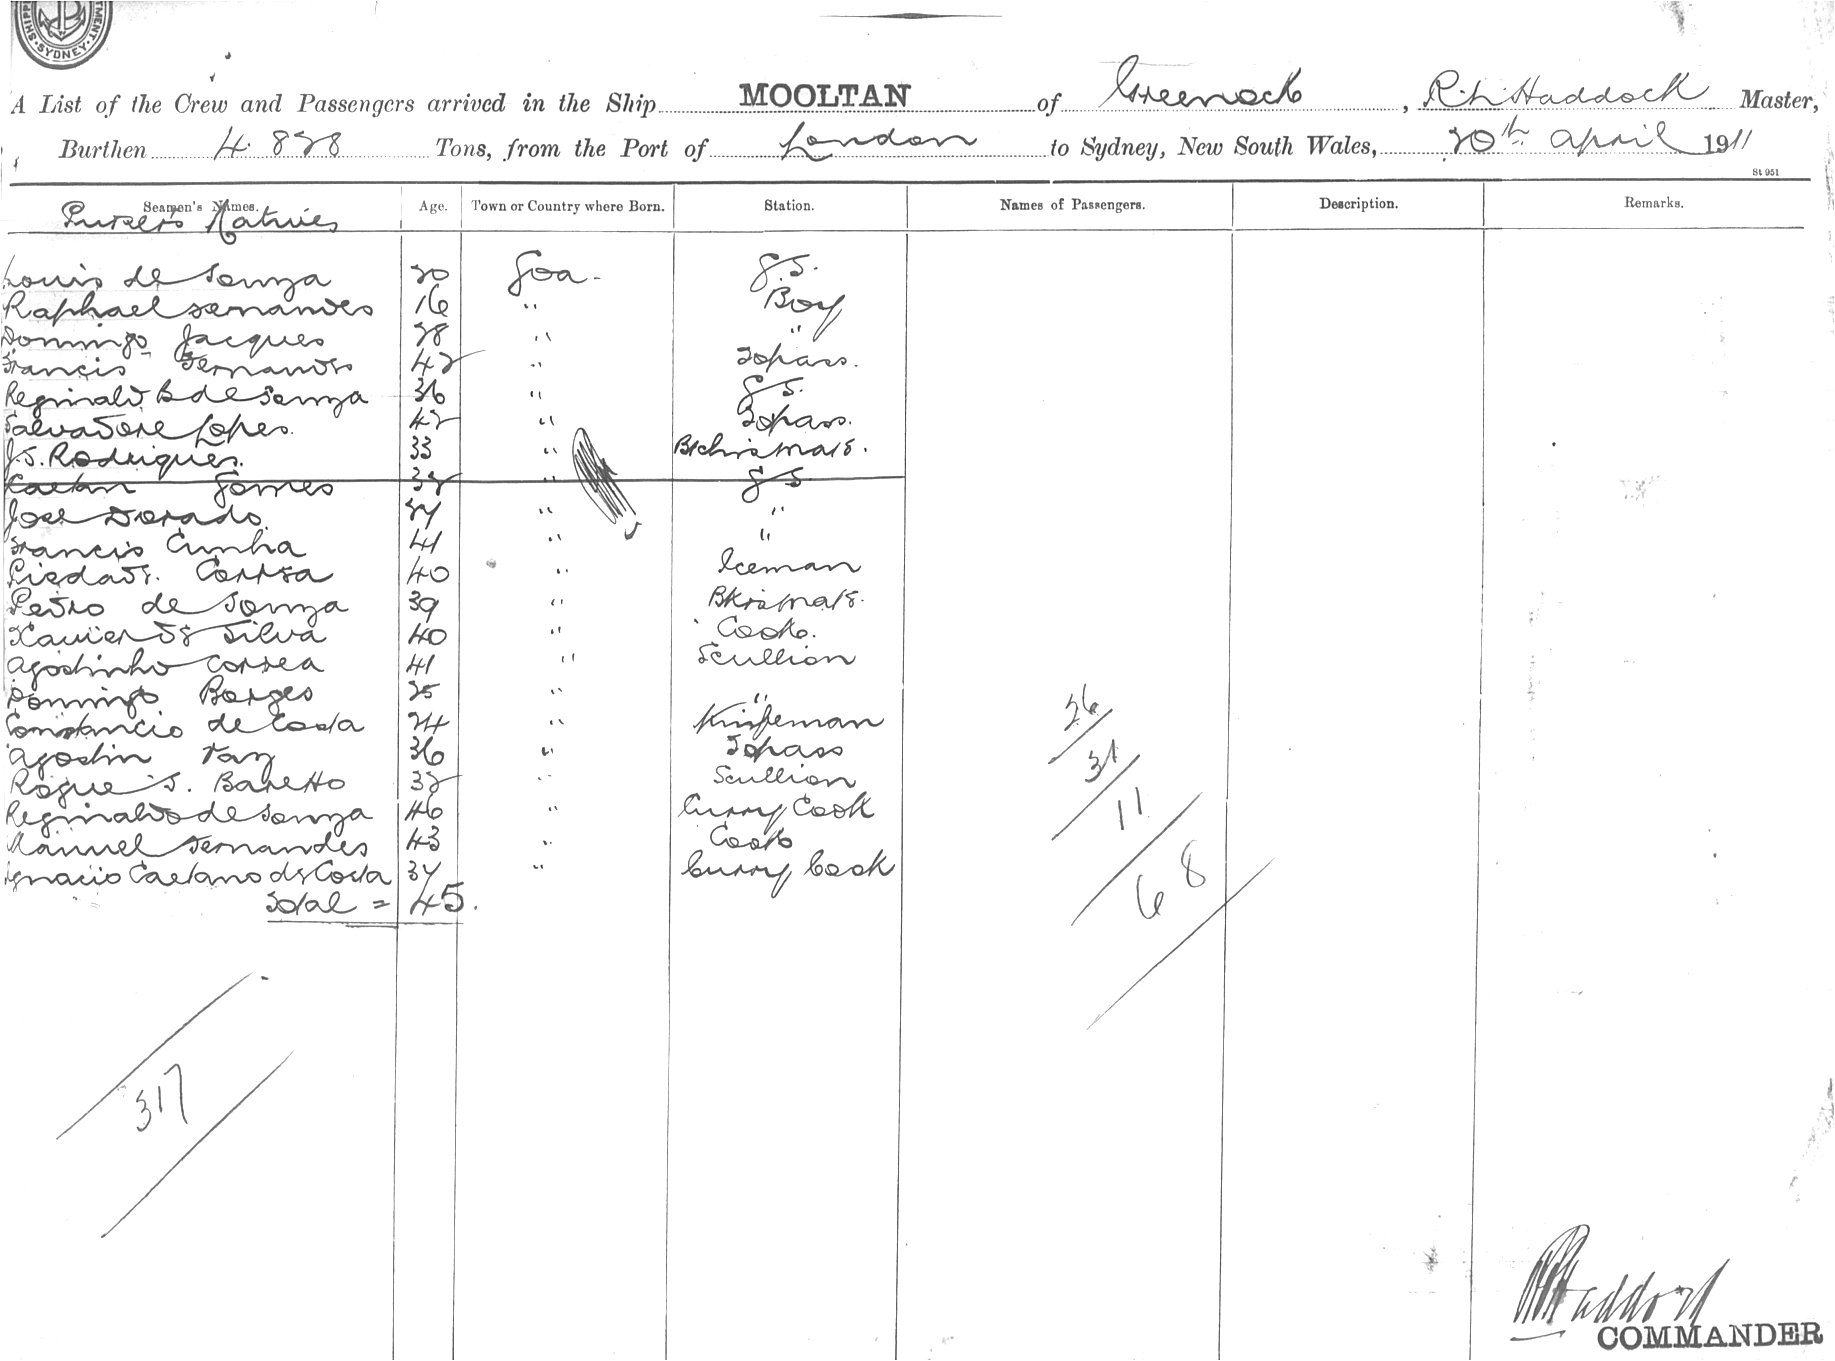 SHIPPI MENT SYDNEY.
A List of the Crew and Passengers arrived in the Ship MOOLTAN of Greenock, R. L. Haddock Master,
Burthen 4.828 Tons, from the Port of London to Sydney, New South Wales, 20th April 1911
St 951
Seamen's Names. Age. Town or Country where Born. Station. Names of Passengers. Description. Remarks.
Purser's Natives
Louis de Souza 20 Goa - G.S.
Raphael Fernandes 16 " Boy
Domingo Jacques 28 " "
Francis Fernandes 42 " Topass.
Reginald B de Souza 36 " G.S.
Salvadore Lopes. 42 " Topass.
J.S. Rodrigues. 33 "
Caetan Gomes 32 " G S
Jose Dorado. "  "
Francis Cunha 41 " "
Piedade. Correa 40 " Iceman
Pedro de Souza 39 "
Xavier de Silva 40 " Cook.
Agostinho Correa 41 " Scullion
Domingo Borges 25 " "
Constancio de Costa 24 " Knifeman
Agostin Vaz 36 " Topass
Roque S. Baretto 32 " Scullion
Reginald de Souza 40 " Curry Cook
Manuel Fernandes 43 " Cook
Ignacio Caetano de Costa 34 " Curry Cook
Total = 45.
26
31
11
68
317
R L Haddock
COMMANDER